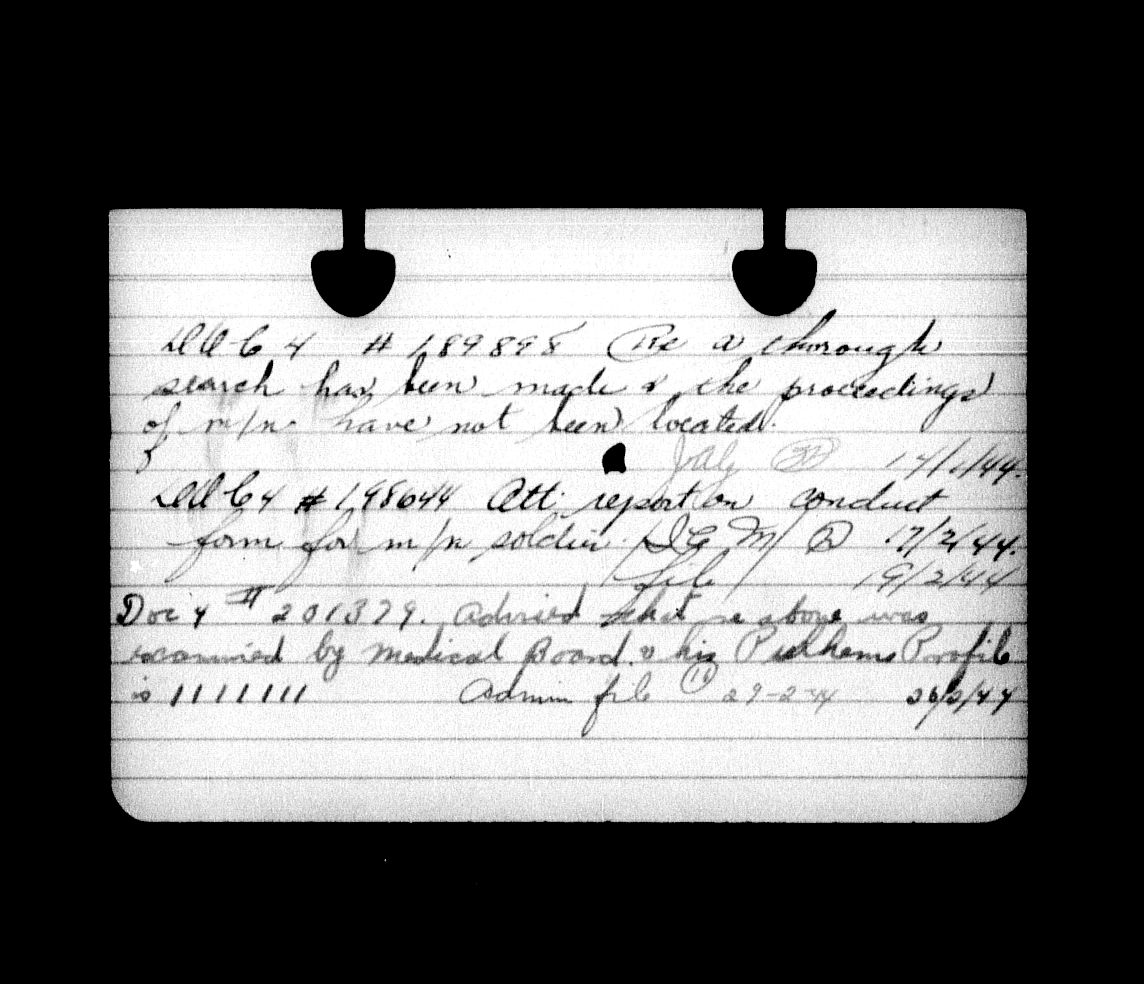 # 189898 Re a thorough
search has been made & the proceedings
of m/n have not been located.
14/1/44.
# 198644 Att: report on conduct
form for m/n soldier. 17/2/44.
file 19/2/44
Doc 4 # 201379. Advised that re above was
examined by Medical Board. & his Pulhems Profile
is 1111111 Admin file 11 29-2-44 26/2/44